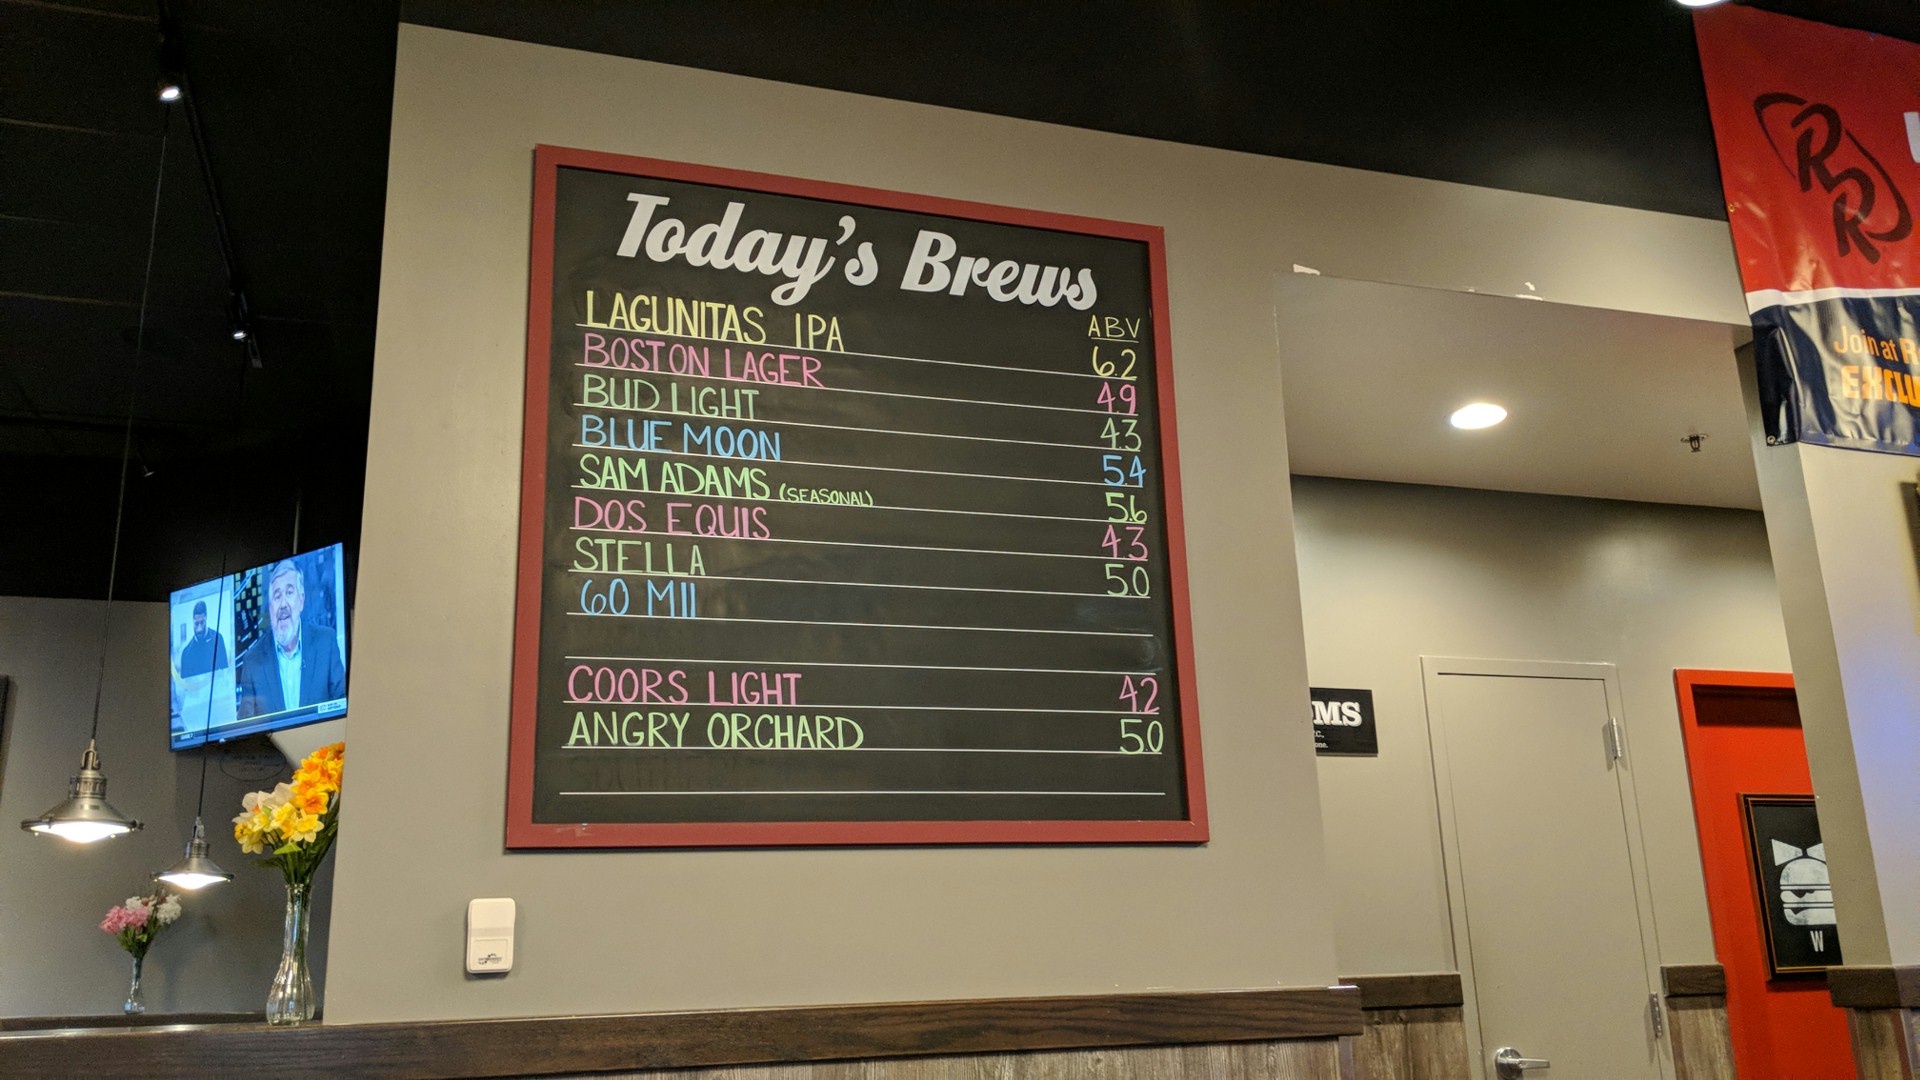 Today's Brews
ABV
LAGUNITAS IPA 6.2
BOSTON LAGER 4.9
BUD LIGHT 4.3
BLUE MOON 5.4
SAM ADAMS (SEASONAL) 5.6
DOS EQUIS 4.3
STELLA 5.0
60 MII
COORS LIGHT 4.2
ANGRY ORCHARD 5.0
RR
Join at R
EXCLU
MS
W